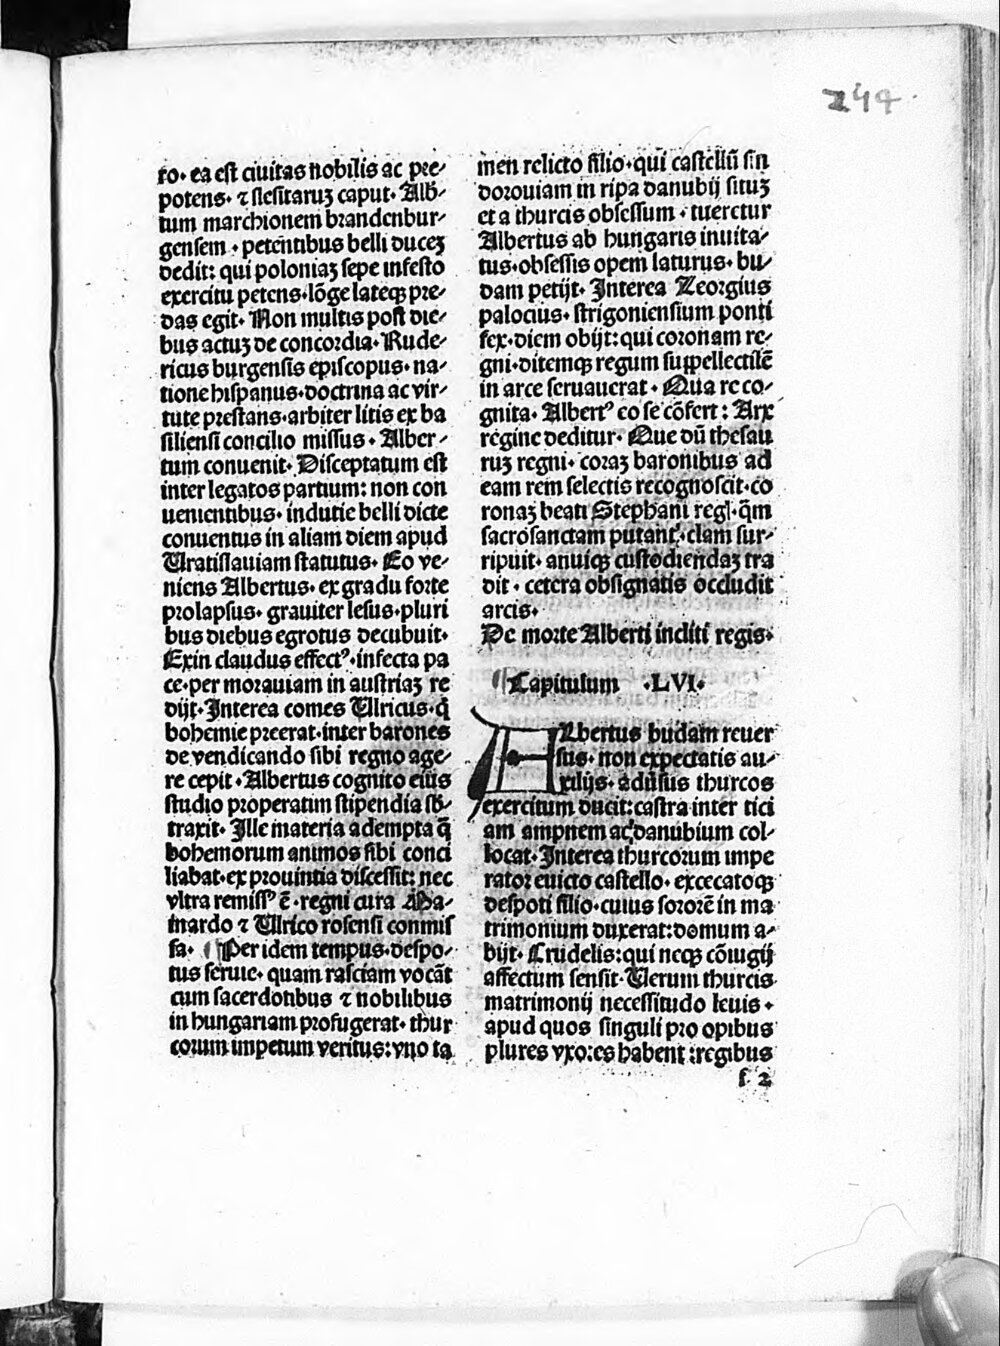 244
ro. ea est ciuitas nobilis ac pre⸗
potens. ⁊ slesitaruꝫ caput. Alb⸗
tum marchionem brandenbur⸗
gensem. petentibus belli duceꝫ
dedit: qui poloniaꝫ sepe infesto
exercitu petens. lōge lateqꝫ pre⸗
das egit. Non multis post die⸗
bus actuꝫ de concordia. Rude⸗
ricus burgensis episcopus. na⸗
tione hispanus. doctrina ac vir⸗
tute prestans. arbiter litis ex ba
siliensi concilio missus. Alber⸗
tum conuenit. Disceptatum est
inter legatos partium: non con
uenientibus. indutie belli dicte
conuentus in aliam diem apud
Vratislauiam statutus. Eo ve⸗
niens Albertus. ex gradu forte
prolapsus. grauiter lesus. pluri
bus diebus egrotus decubuit.
Exin claudus effectꝰ. infecta pa
ce. per morauiam in austriaꝫ re
dijt. Interea comes Vlricus. q̄
bohemie preerat. inter barones
de vendicando sibi regno age⸗
re cepit. Albertus cognito eius
studio properatim stipendia sb⸗
traxit. Ille materia adempta q̄
bohemorum animos sibi conci
liabat. ex prouintia discessit: nec
vltra remissꝰ ē. regni cura Ma⸗
inardo ⁊ Vlrico rosensi commis
sa. ¶ Per idem tempus. despo⸗
tus seruie. quam rasciam vocāt
cum sacerdotibus ⁊ nobilibus
in hungariam profugerat. thur
corum impetum veritus: vno ta
men relicto filio. qui castellū sin
dorouiam in ripa danubij situꝫ
et a thurcis obsessum. tueretur
Albertus ab hungaris inuita⸗
tus. obsessis opem laturus. bu⸗
dam petijt. Interea Georgius
palocius. strigoniensium ponti
fex. diem obijt: qui coronam re⸗
gni. ditemqꝫ regum suppellectilē
in arce seruauerat. Qua re co⸗
gnita. Albertꝰ eo se cōfert: Arx
regine deditur. Que dū thesau
ruꝫ regni. coraꝫ baronibus ad
eam rem selectis recognoscit. co
ronaꝫ beati Stephani reg. q̄m
sacrosanctam putant. clam sur⸗
ripuit. anuiqꝫ custodiendaꝫ tra
dit. cetera obsignatis occludit
arcis.
De morte Alberti incliti regis.
¶ Capitulum .LVI.
Albertus budam reuer
sus. non expectatis au⸗
xilijs. aduersus thurcos
exercitum ducit: castra inter tici
am ampnem ac danubium col⸗
locat. Interea thurcorum impe
rator euicto castello. excecatoqꝫ
despoti filio. cuius sororē in ma
trimonium duxerat: domum a⸗
bijt. Crudelis: qui neqꝫ cōiugij
affectum sensit. Verum thurcis
matrimonij necessitudo leuis.
apud quos singuli pro opibus
plures vxores habent: regibus
s 2